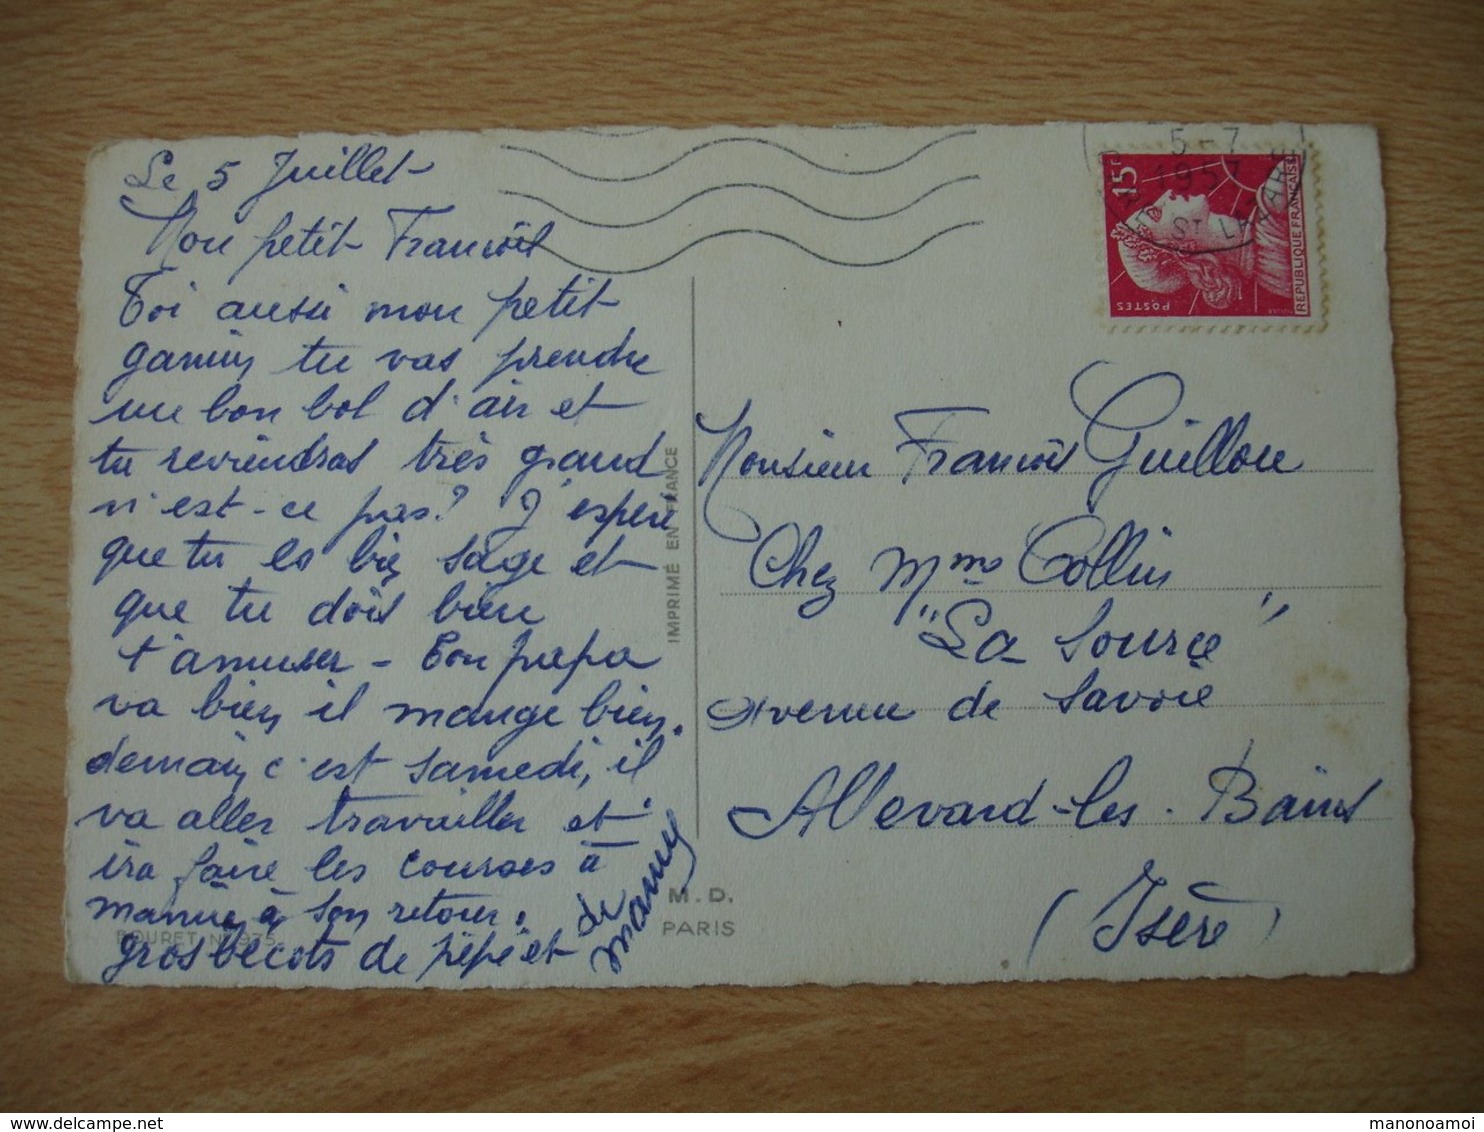 Le 5 Juillet
Mon petit François
Toi aussi mon petit
gamin tu vas prendre
un bon bol d'air et
tu reviendras très grand
n'est-ce pas? J'espère
que tu es bien sage et
que tu dois bien
t'amuser - Ton papa
va bien, il mange bien.
demain c'est samedi, il
va aller travailler et
ira faire les courses à
mamie à son retour.
gros bécots de pépé et
de
mamy
BOURET N° 975
IMPRIMÉ EN FRANCE
M. D.
PARIS
5-7
1957
ST LAZARE
15F
POSTES
REPUBLIQUE FRANÇAISE
Monsieur François Guillou
Chez Mme Collin
"La Source"
Avenue de Savoie
Allevard-les-Bains
(Isère)
manonoamoi